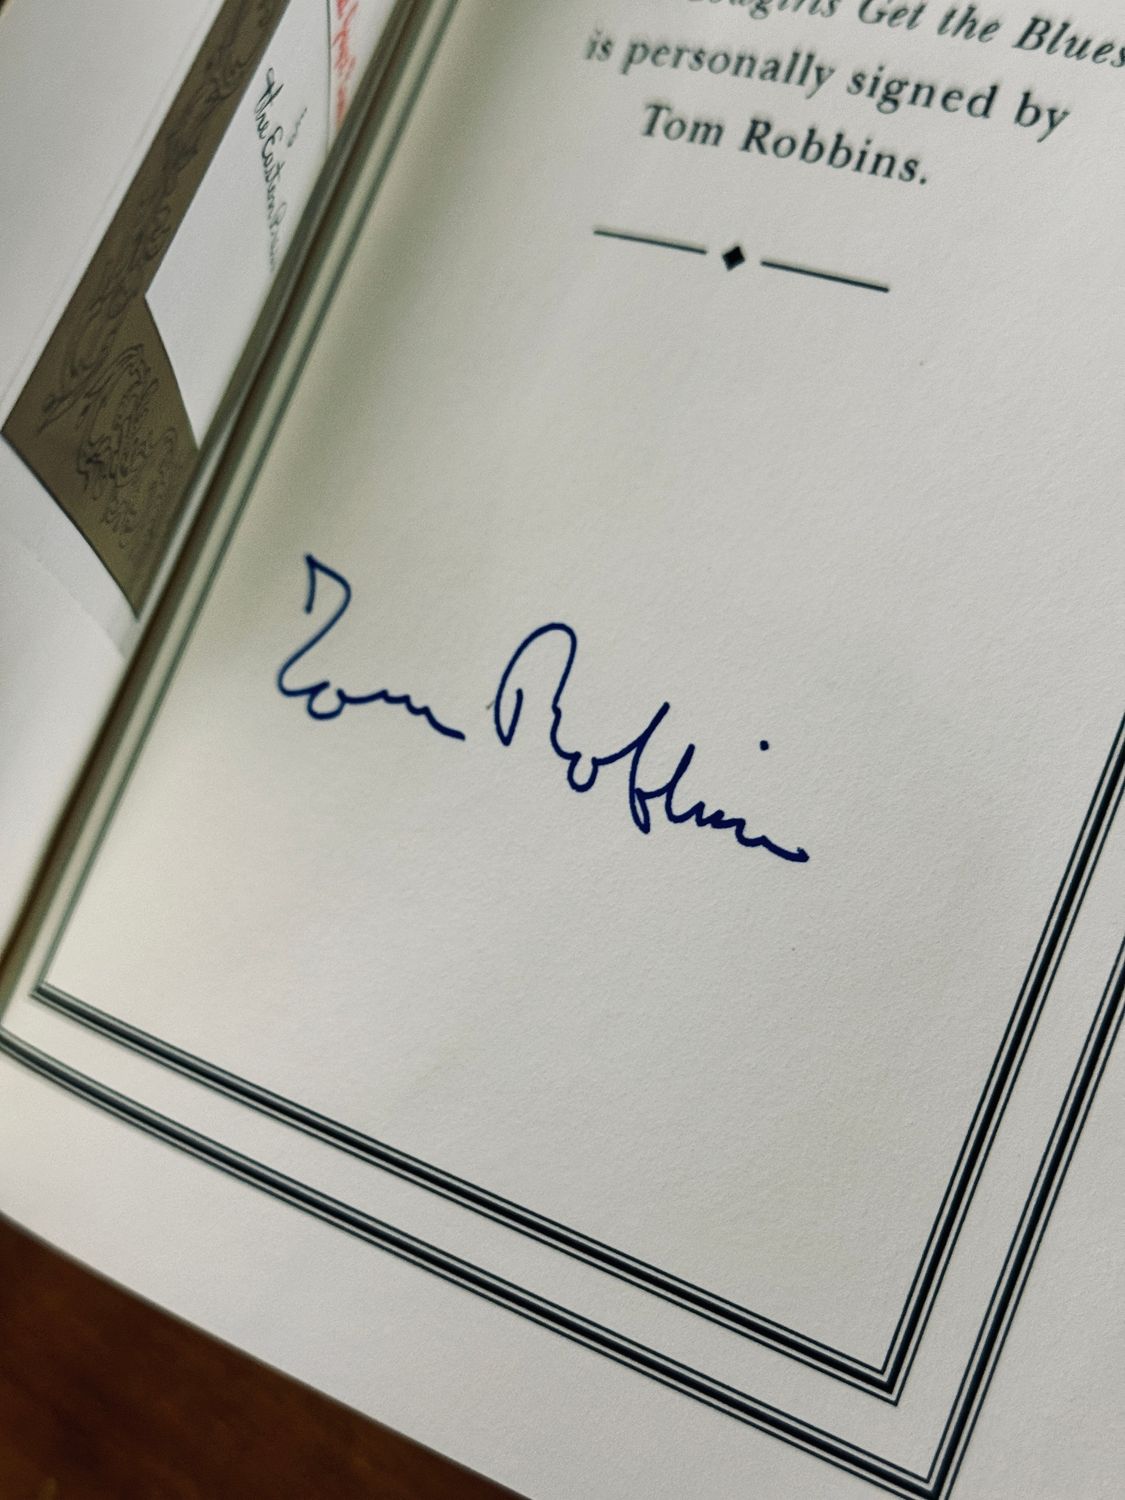 Get the Blues
is personally signed by
Tom Robbins.
Tom Robbins
the Eastern